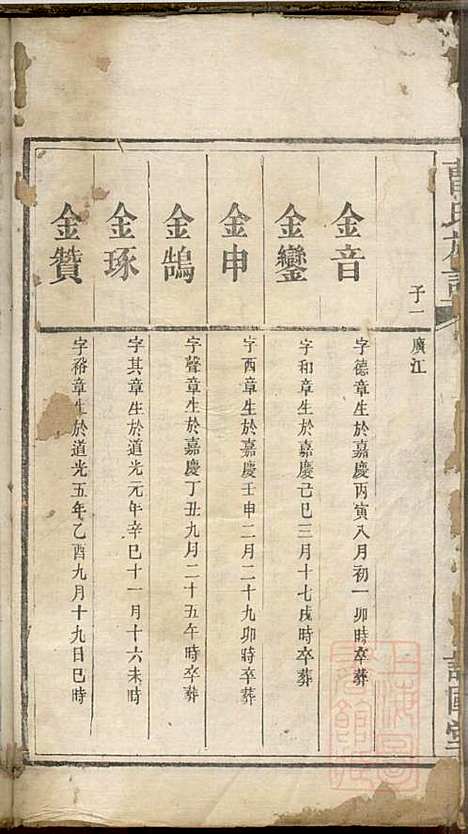 曹氏族譜
子一
廣江
金音
字德章生於嘉慶丙寅八月初一卯時卒葬
金鑾
字和章生於嘉慶己巳三月十七戌時卒葬
金申
字酉章生於嘉慶壬申二月二十九卯時卒葬
金鵠
字聲章生於嘉慶丁丑九月二十五午時卒葬
金琢
字其章生於道光元年辛巳十一月十六未時
金贊
字裕章生於道光五年乙酉九月十九日巳時